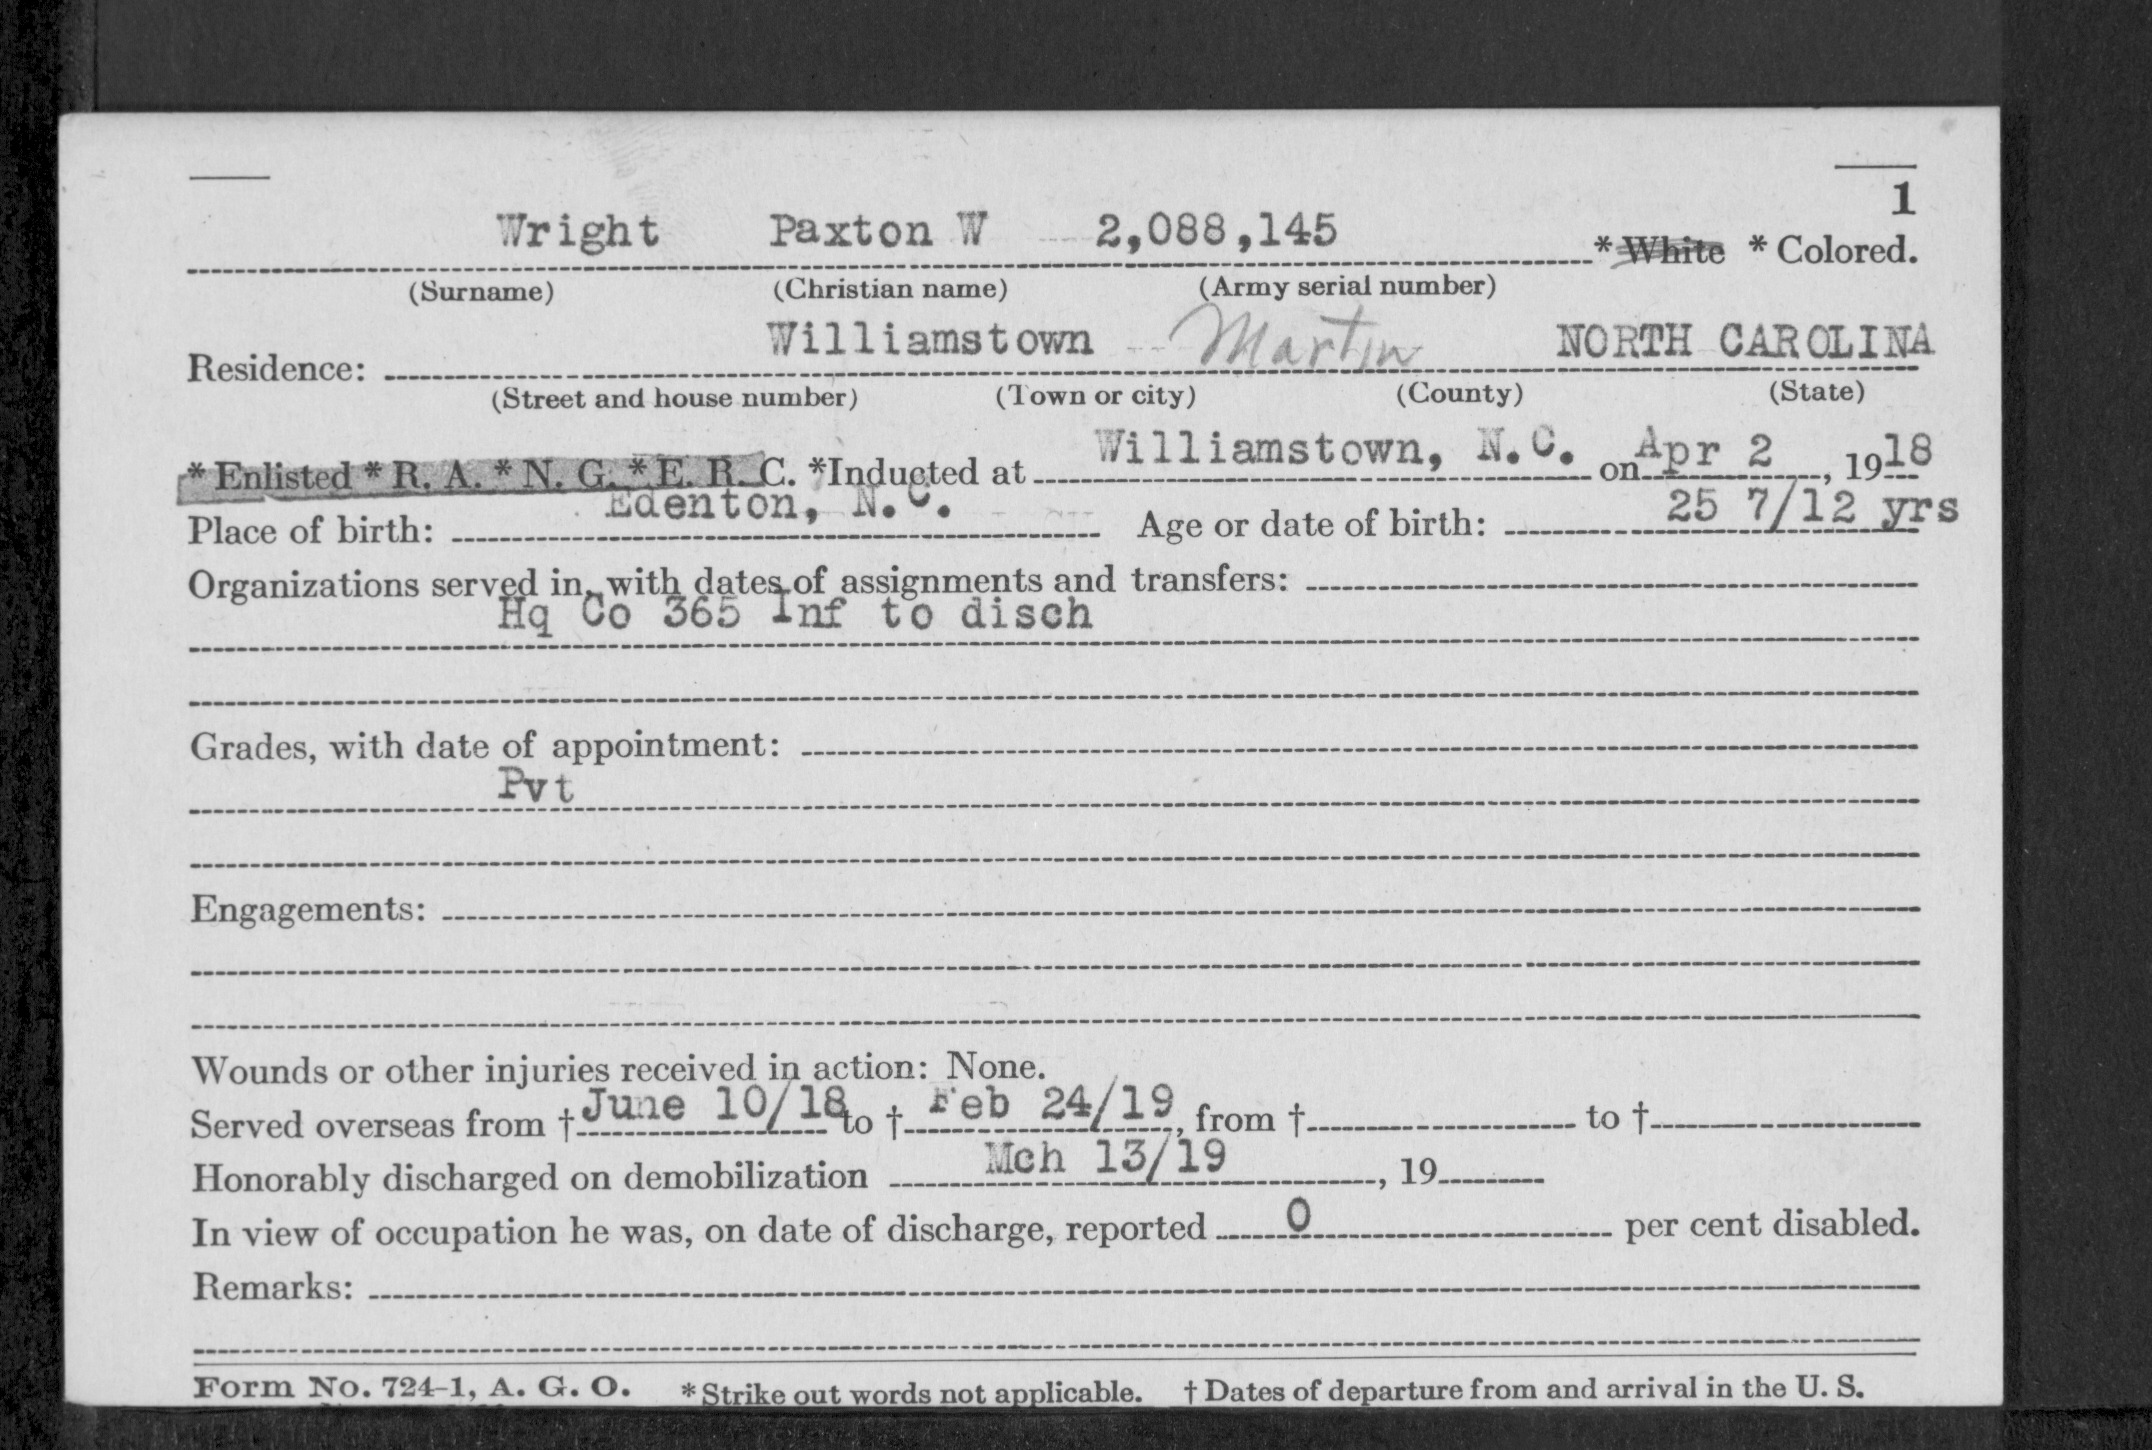 1
Wright Paxton W 2,088,145 * White * Colored.
(Surname) (Christian name) (Army serial number)
Residence: Williamstown Martin NORTH CAROLINA
(Street and house number) (Town or city) (County) (State)
* Enlisted * R. A. * N. G. * E. R. C. *Inducted at Williamstown, N.C. on Apr 2, 1918
Place of birth: Edenton, N.C. Age or date of birth: 25 7/12 yrs
Organizations served in, with dates of assignments and transfers:
Hq Co 365 Inf to disch
Grades, with date of appointment:
Pvt
Engagements:
Wounds or other injuries received in action: None.
Served overseas from † June 10/18 to † Feb 24/19, from † to †
Honorably discharged on demobilization Mch 13/19, 19
In view of occupation he was, on date of discharge, reported 0 per cent disabled.
Remarks:
Form No. 724-1, A. G. O. * Strike out words not applicable. † Dates of departure from and arrival in the U. S.